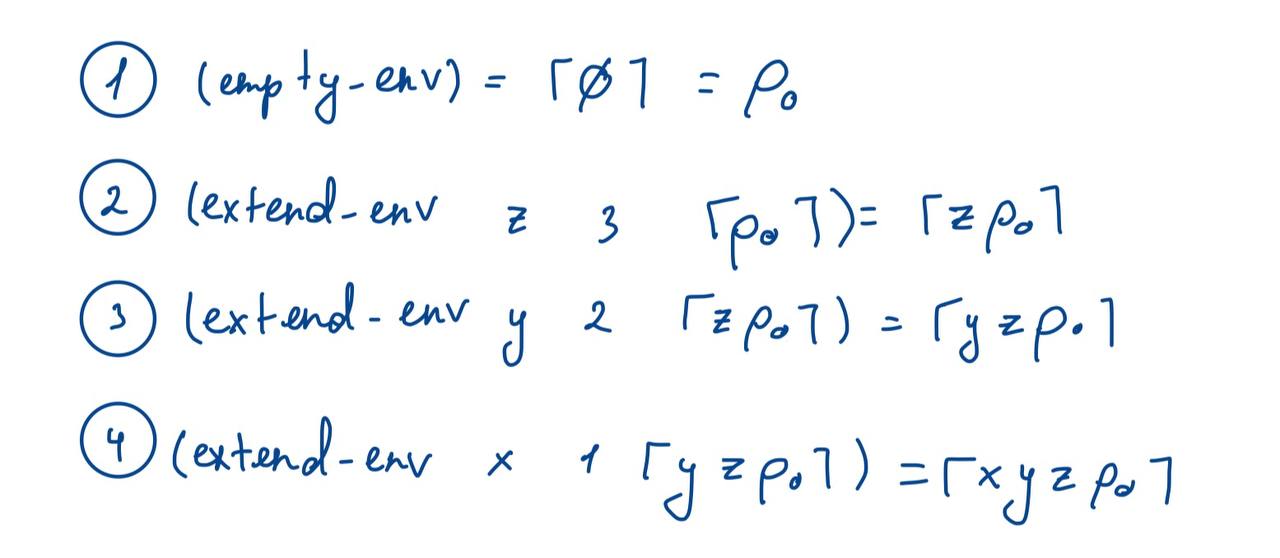 ① (empty-env) = ⌈∅⌉ = ρ₀
② (extend-env z 3 ⌈ρ₀⌉) = ⌈z ρ₀⌉
③ (extend-env y 2 ⌈z ρ₀⌉) = ⌈y z ρ₀⌉
④ (extend-env x 1 ⌈y z ρ₀⌉) = ⌈x y z ρ₀⌉